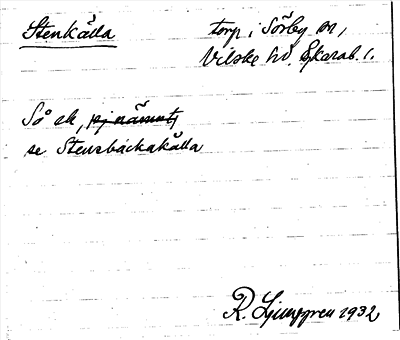 Stenkälla
torp i Sörby sn,
Vilske hd. Skarab. l.
Så ek, ej nämnt,
se Stensbackakälla
R. Ljunggren 1932